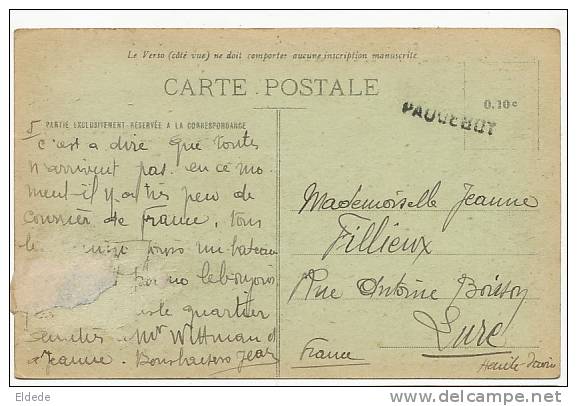 Le Verso (côté vue) ne doit comporter aucune inscription manuscrite
CARTE POSTALE
0.10c
PAQUEBOT
5
PARTIE EXCLUSIVEMENT RÉSERVÉE A LA CORRESPONDANCE
c'est a dire que toutes
n'arrivent pas. en ce mo
ment il y a très peu de
courrier de france, tous
les un bateau
le bonjour
le quartier
Mr Wittman et
a Jeanne. Bons baisers Jean
Mademoiselle Jeanne
Fillieux
Rue Antoine Boisson
Lure
France
Haute-Saône
Eldede
delcampe.net